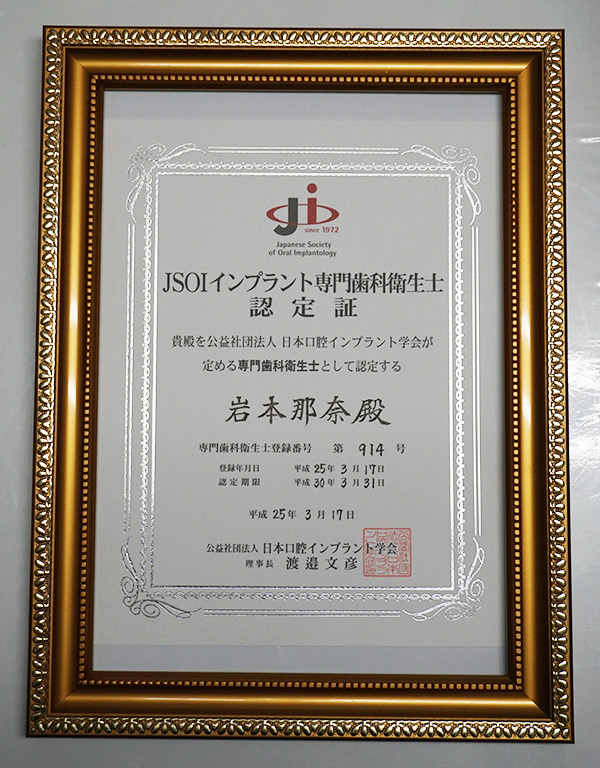 ji
since 1972
Japanese Society
of Oral Implantology
JSOIインプラント専門歯科衛生士
認定証
貴殿を公益社団法人 日本口腔インプラント学会が
定める専門歯科衛生士として認定する
岩本那奈殿
専門歯科衛生士登録番号 第 914 号
登録年月日 平成 25年 3月 17日
認定期限 平成 30年 3月 31日
平成 25年 3月 17日
公益社団法人 日本口腔インプラント学会
理事長 渡邉文彦